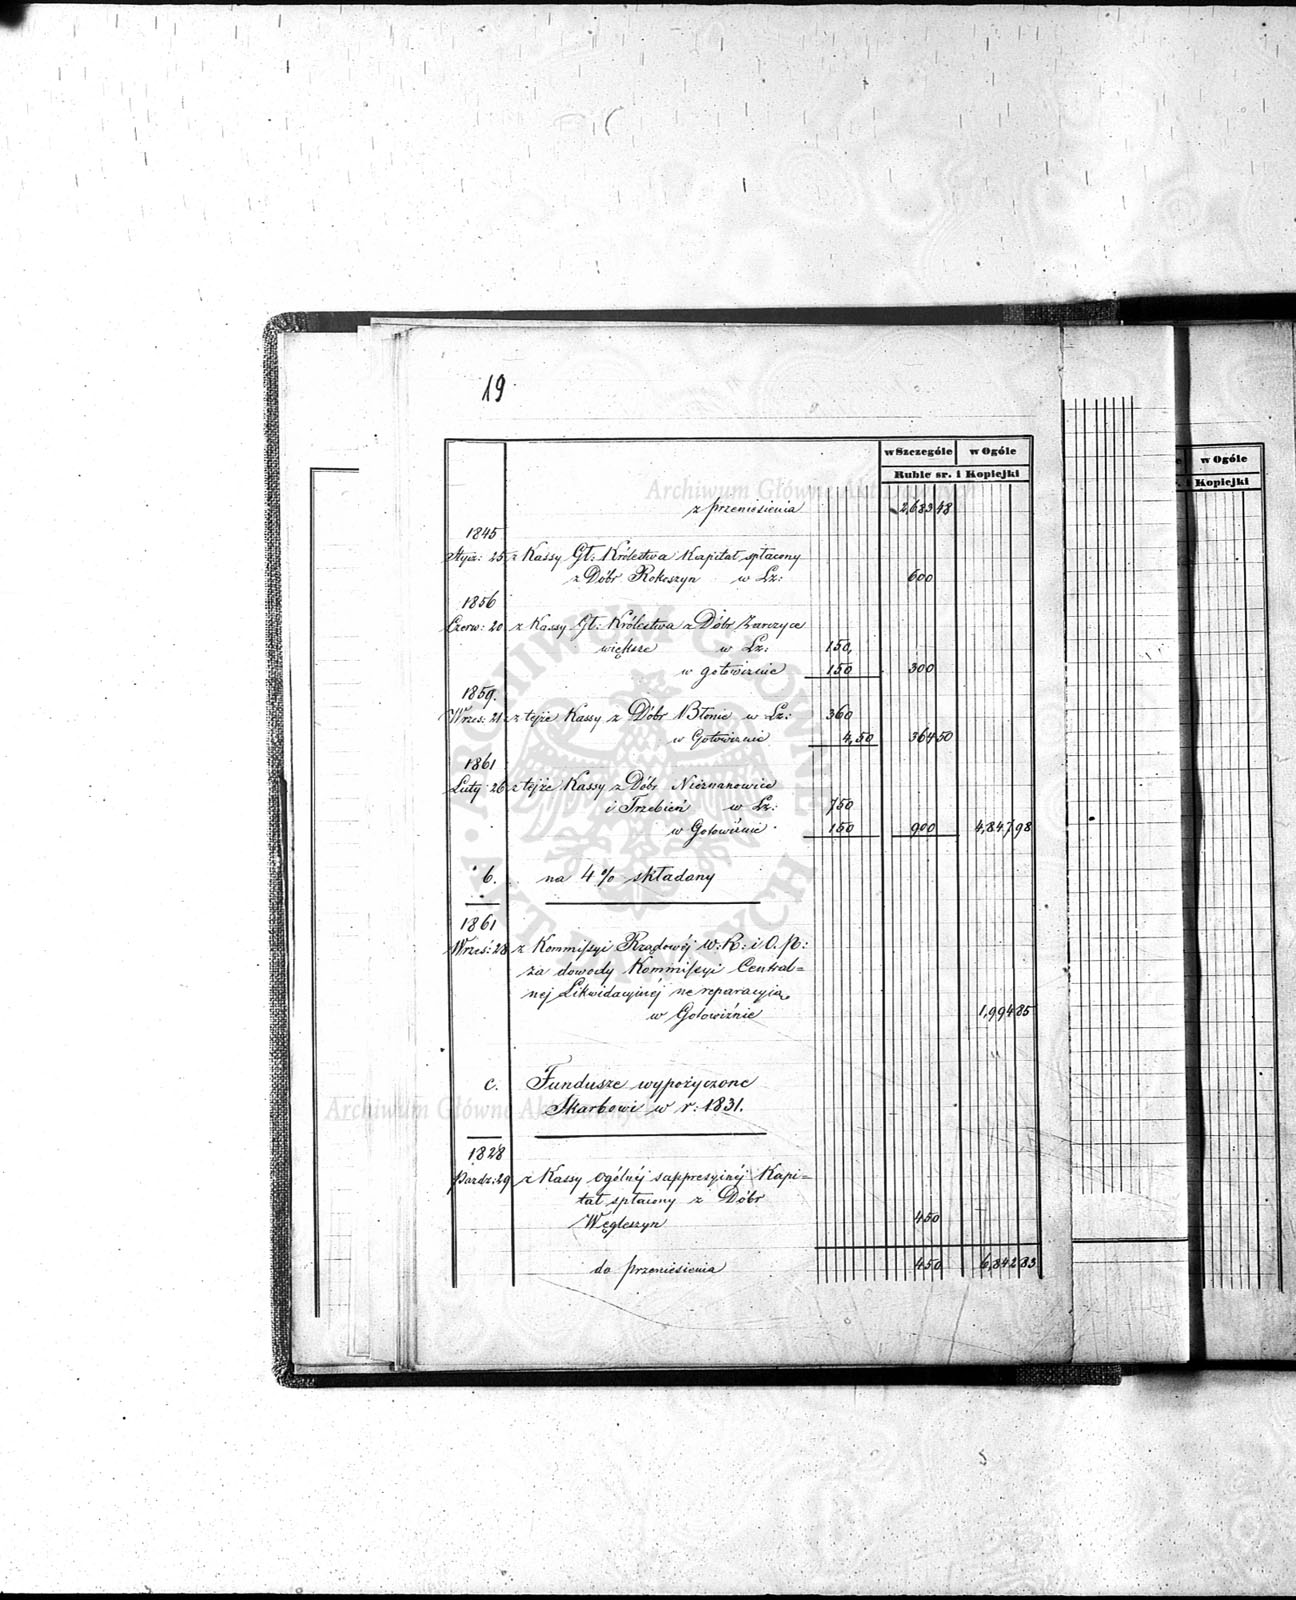 19
w Szczególe w Ogóle
Ruble sr. i Kopiejki
w Ogóle
i Kopiejki
z przeniesienia 2,683 48
1845
Stycz: 25 z Kassy Gł: Królestwa Kapitał spłacony
z Dóbr Rokoszyn w Lz: 600
1856
Czerw: 20 z Kassy Gł: Królestwa z Dóbr Żarczyce
większe w Lz: 150,
w gotowiznie 150 300
1859.
Wrześ: 21 z tejże Kassy z Dóbr Błonie w Lz: 360
w Gotowiznie 4,50 364 50
1861
Luty 26 z tejże Kassy z Dóbr Nieznanowice
i Trzebień w Lz: 750
w Gotowiźnie 150 900 4,847,98
b. na 4 % składany
1861
Wrześ: 28 z Kommissyi Rządowéj W. R: i O. P:
za dowody Kommissyi Central=
nej Likwidacyjnéj ne reparacyją
w Gotowiźnie 1,994 85
c. Fundusze wypożyczone
Skarbowi w r: 1831.
1828
Pazdz: 29 z Kassy ogólnéj suppresyjnéj Kapi=
tał spłacony z Dóbr
Węgleszyn 450
do przeniesienia 450 6,842 83
Archiwum Główne Akt Dawnych
Archiwum Główne Akt Dawnych
ARCHIWUM GŁÓWNE AKT DAWNYCH